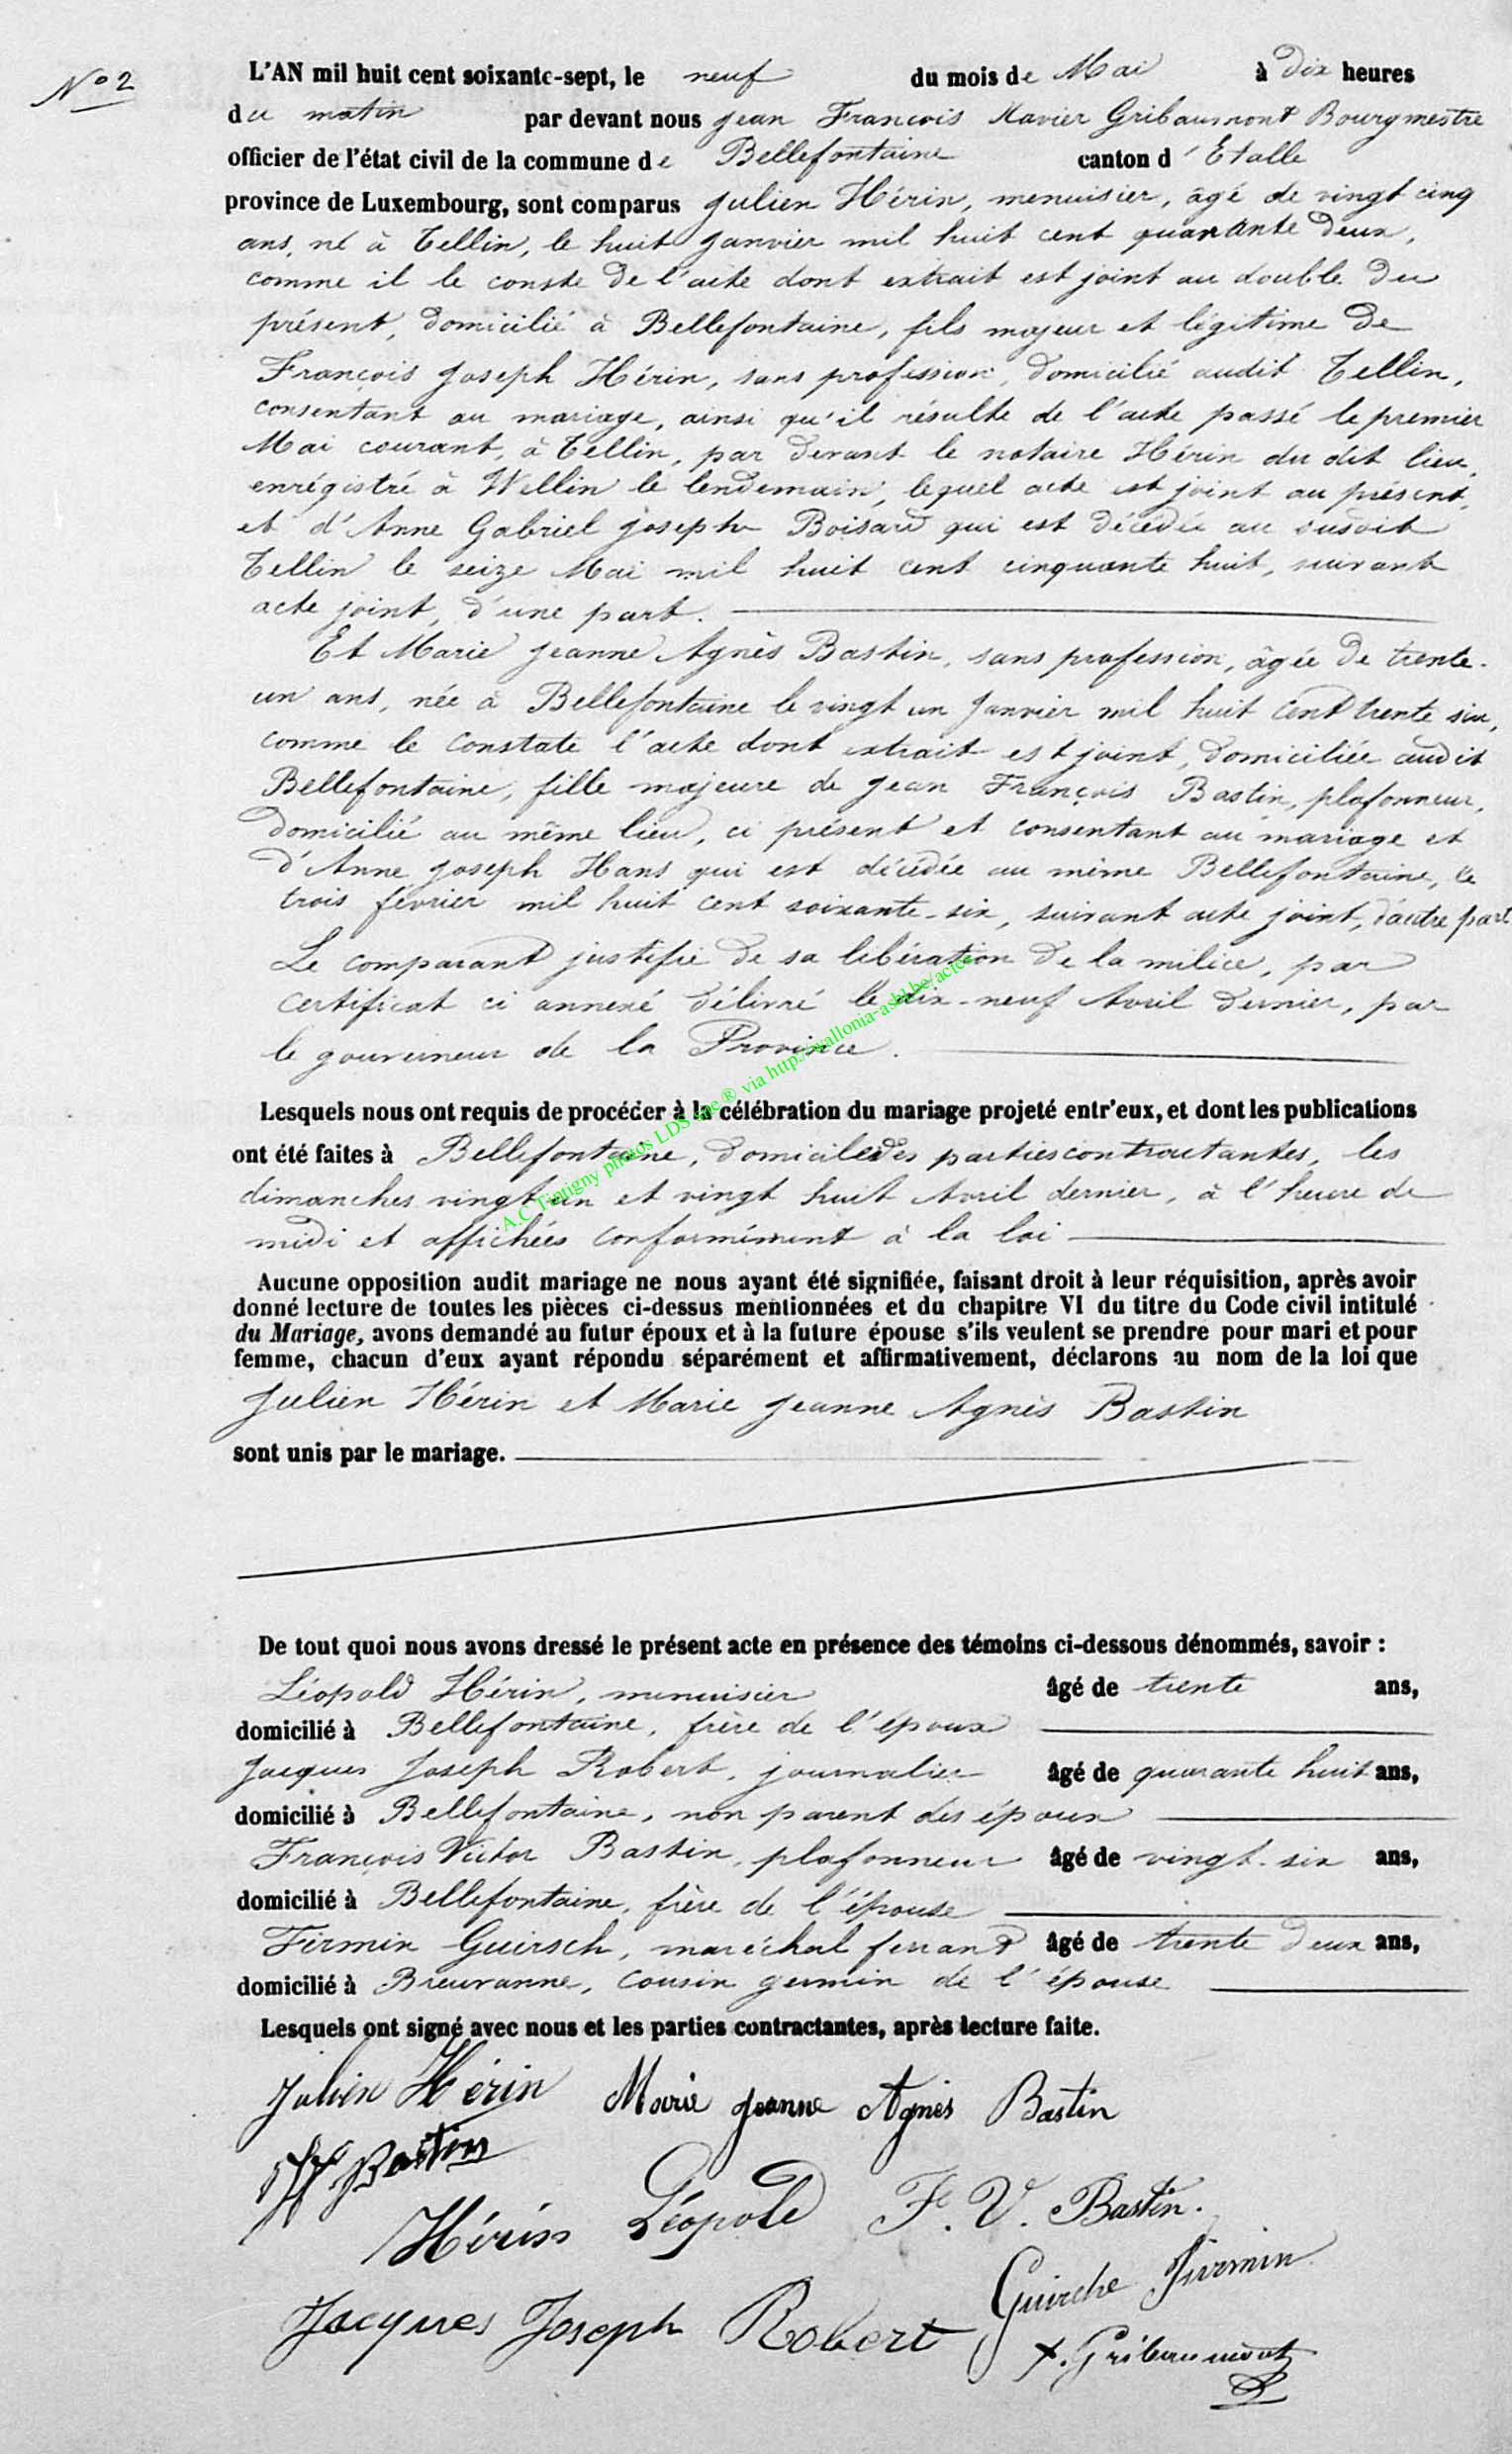 N° 2
L'AN mil huit cent soixante-sept, le neuf du mois de Mai à dix heures
du matin par devant nous Jean François Xavier Gribaumont Bourgmestre
officier de l'état civil de la commune de Bellefontaine canton d'Etalle
province de Luxembourg, sont comparus Julien Hérin, menuisier, âgé de vingt cinq
ans, né à Tellin, le huit Janvier mil huit cent quarante deux,
comme il le conste de l'acte dont extrait est joint au double du
présent, domicilié à Bellefontaine, fils majeur et légitime de
François Joseph Hérin, sans profession, domicilié audit Tellin,
consentant au mariage, ainsi qu'il résulte de l'acte passé le premier
Mai courant, à Tellin, par devant le notaire Hérin du dit lieu,
enrégistré à Wellin le lendemain, lequel acte est joint au présent,
et d'Anne Gabriel Joseph Boisard qui est décédée au susdit
Tellin le seize Mai mil huit cent cinquante huit, suivant
acte joint, d'une part.
Et Marie Jeanne Agnès Bastin, sans profession, âgée de trente-
un ans, née à Bellefontaine le vingt un Janvier mil huit cent trente six,
comme le constate l'acte dont extrait est joint, domiciliée audit
Bellefontaine, fille majeure de Jean François Bastin, plafonneur,
domicilié au même lieu, ci présent et consentant au mariage et
d'Anne Joseph Hans qui est décédée au même Bellefontaine, le
trois février mil huit cent soixante-six, suivant acte joint, d'autre part
Le comparant justifie de sa libération de la milice, par
certificat ci annexé délivré le dix-neuf Avril dernier, par
le gouverneur de la Province.
A.C Tintigny photos LDS ® via http://wallonia-asbl.be/actes
Lesquels nous ont requis de procéder à la célébration du mariage projeté entr'eux, et dont les publications
ont été faites à Bellefontaine, domicile des parties contractantes, les
dimanches vingt un et vingt huit Avril dernier, à l'heure de
midi et affichées conformément à la loi
Aucune opposition audit mariage ne nous ayant été signifiée, faisant droit à leur réquisition, après avoir
donné lecture de toutes les pièces ci-dessus mentionnées et du chapitre VI du titre du Code civil intitulé
du Mariage, avons demandé au futur époux et à la future épouse s'ils veulent se prendre pour mari et pour
femme, chacun d'eux ayant répondu séparément et affirmativement, déclarons au nom de la loi que
Julien Hérin et Marie Jeanne Agnès Bastin
sont unis par le mariage.
De tout quoi nous avons dressé le présent acte en présence des témoins ci-dessous dénommés, savoir :
Léopold Hérin, menuisier âgé de trente ans,
domicilié à Bellefontaine, frère de l'époux
Jacques Joseph Robert, journalier âgé de quarante huit ans,
domicilié à Bellefontaine, non parent des époux
François Victor Bastin, plafonneur âgé de vingt-six ans,
domicilié à Bellefontaine, frère de l'épouse
Firmin Guirsch, maréchal ferrant âgé de trente deux ans,
domicilié à Breuvanne, cousin germin de l'épouse
Lesquels ont signé avec nous et les parties contractantes, après lecture faite.
Julien Hérin Marie Jeanne Agnès Bastin
Bastin
Hérin Léopold F. V. Bastin.
Guirche Firmin
Jacques Joseph Robert
X. Gribaumont